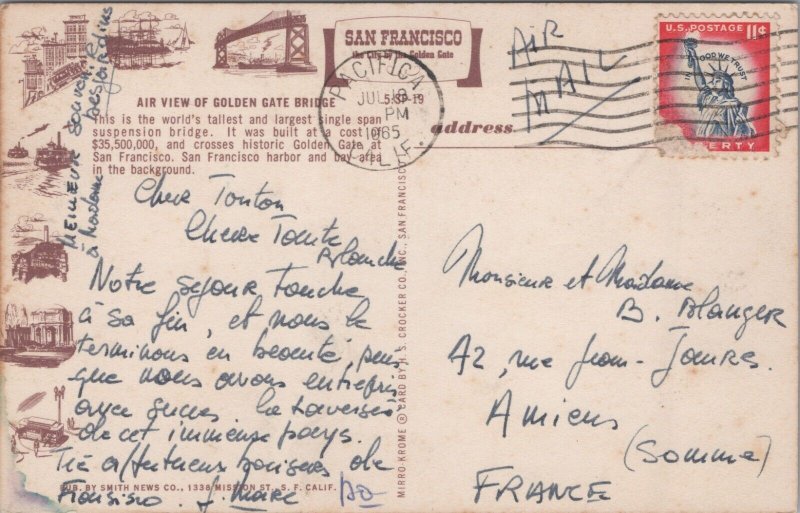 SAN FRANCISCO
the City by the Golden Gate
AIR VIEW OF GOLDEN GATE BRIDGE 5:SP-19
This is the world's tallest and largest single span
suspension bridge. It was built at a cost of
$35,500,000, and crosses historic Golden Gate at
San Francisco. San Francisco harbor and bay area
in the background.
MEILLEUR SOUVENIR
à Madame
Cher Tonton
Chere Tante
Blanche
Notre séjour touche
à sa fin, et nous le
terminons en beauté, puis
que nous avons entrepris
avec succes la traversée
de cet immense pays.
Très affectueux baisers de
J. Marc
PUB. BY SMITH NEWS CO., 1336 MISSION ST., S. F. CALIF.
MIRRO-KROME ® CARD BY H. S. CROCKER CO., INC., SAN FRANCISCO
PACIFICA
JUL 18
PM
1965
CALIF.
AIR
MAIL
address
U.S. POSTAGE 11¢
IN GOD WE TRUST
LIBERTY
Monsieur et Madame
B. Blanger
42, rue Jean-Jaures.
Amiens
(Somme)
FRANCE